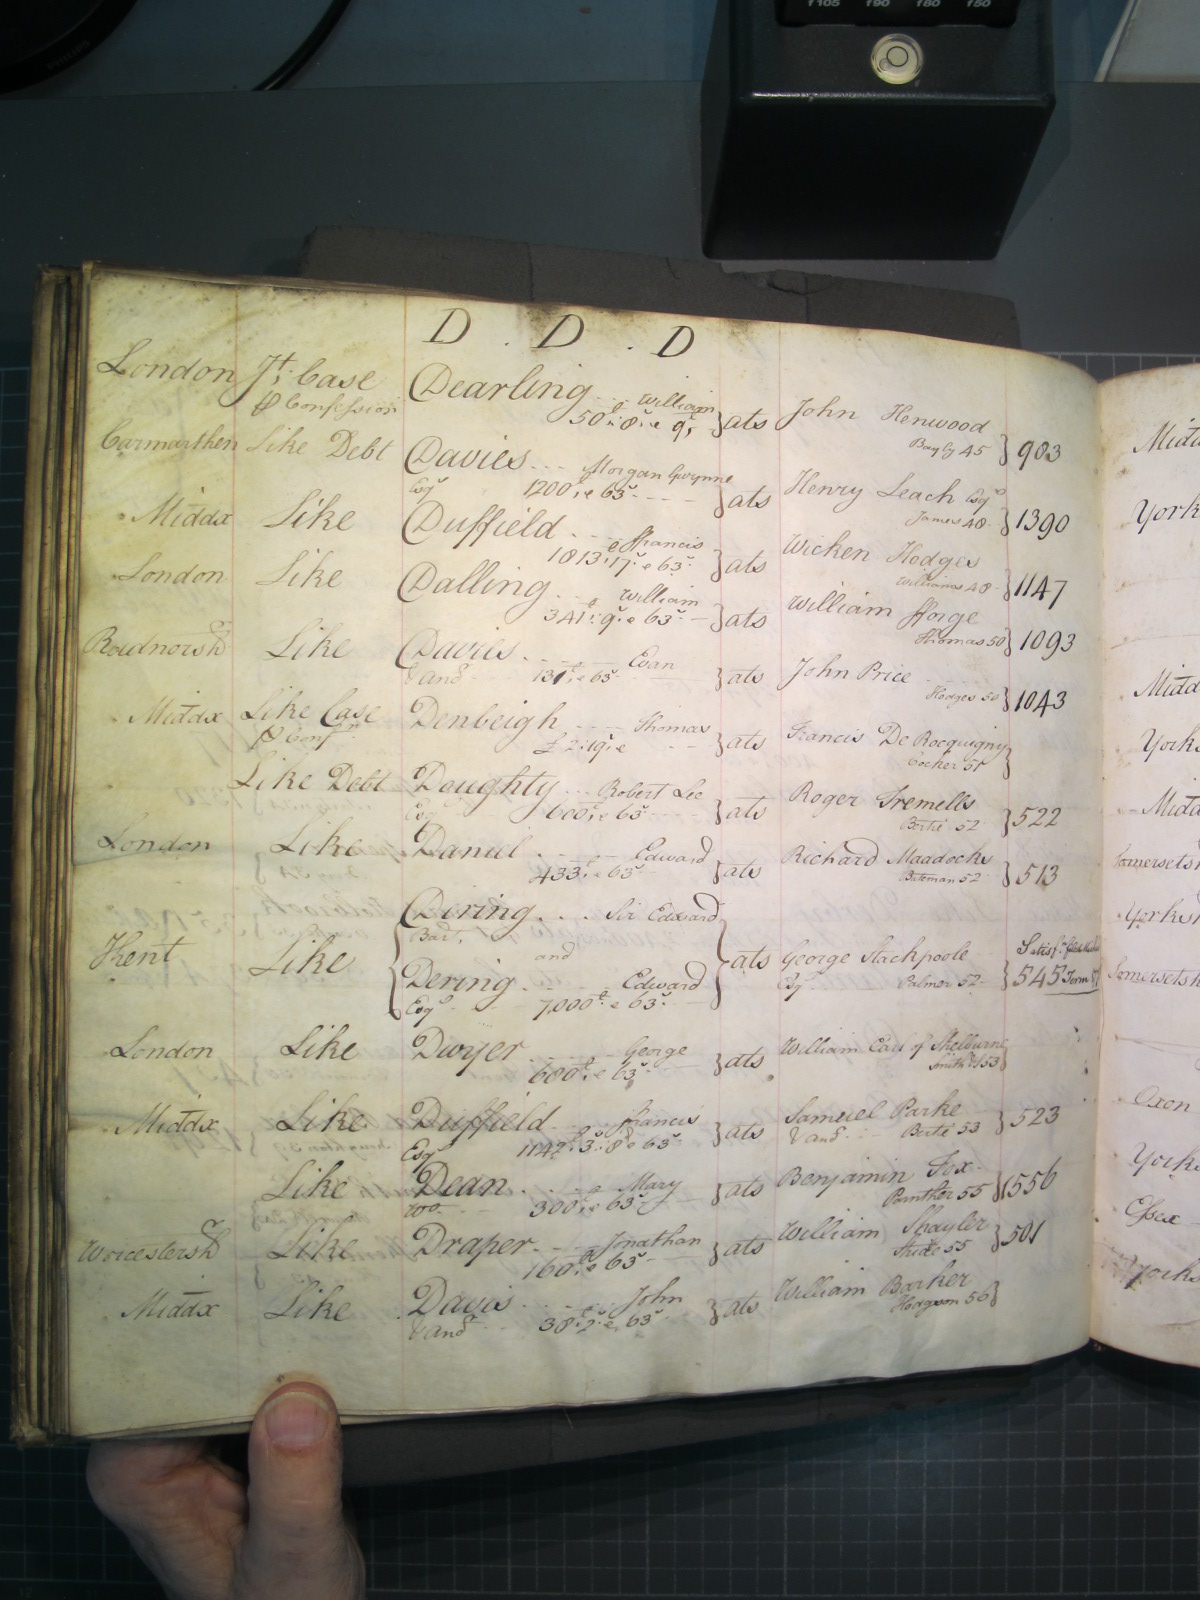 f105 f90 f80 f50
PHILIPS
D . D . D
London Jt; Case Dearling . . . William } ats John Henwood } 903
℘ Confession 50£: 8s: e 9s; Bayly 45
Carmarthen Like Debt Davies . . . Morgan Gwynne } ats Henry Leach Esqr } 1390
Esqr 1200£; e 63s James 48
Middx Like Duffield . . . Francis } ats Wicken Hodges } 1147
1813£: 17s: e 63s Williams 48
London Like Dalling . . . William } ats William Fforge } 1093
341£: 9s: e 63s Thomas 50
Radnorsh Like Davies . . . Evan } ats John Price } 1043
& anor 137£; e 63s Hodges 50
Middx Like Case Denbeigh . . . Thomas } ats Francis De Rocquigny }
℘ Confn £2: 19s; e Cocker 51
Like Debt Doughty . . . Robert Lee } ats Roger Tremells } 522
Esqr 600£; e 63s Bertie 52
London Like Daniel . . . Edward } ats Richard Maddocks } 513
433£; e 63s Bateman 52
Dering . . . Sir Edward
Bart, and
Kent Like } ats George Stackpoole } 545
Dering . . . Edward Esqr Palmer 52 Term
Esqr 7,000£; e 63s
London Like Dwyer . . . George } ats William Earl of Shelburne }
680£; e 63s Smith 53
Middx Like Duffield . . . Francis } ats Samuel Parke } 523
Esqr 1142£: 3s: 8d e 63s & anor Bertie 53
Like Dean . . . Mary } ats Benjamin Fox } 1556
Wo. 300£; e 63s Panther 55
Worcestersh Like Draper . . . Jonathan } ats William Shayler } 501
160£; e 63s Stride 55
Middx Like Davis . . . John } ats William Barker }
& anor 38£: 2s: e 63s Hodgson 56
Midd
York
Midd
Yorks
Midd
Somersetsh
Yorksh
Somersetsh
Oxon
Yorks
Essex
Yorks